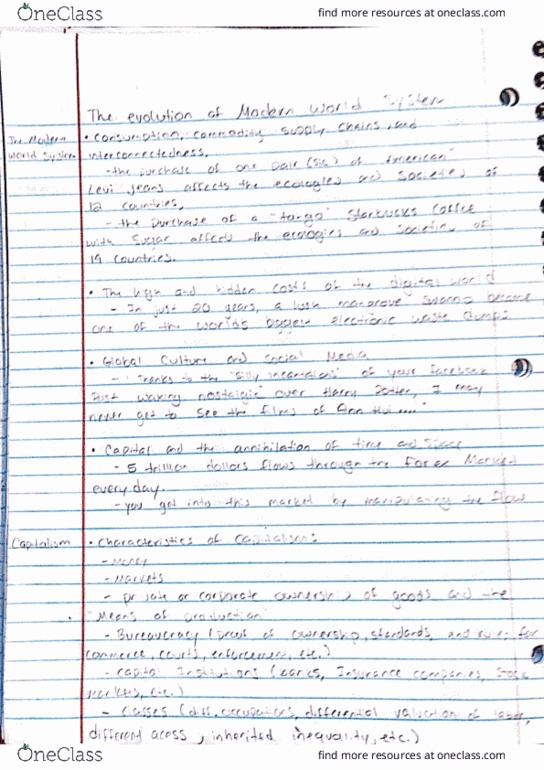 OneClass
find more resources at oneclass.com
The evolution of Modern World System
The Modern
World System
• Consumption, commodity supply chains, and
interconnectedness.
- the purchase of one pair (sic) of American
Levi jeans affects the ecologies and societies of
12 countries.
- the purchase of a "to-go" Starbucks Coffee
with Sugar affects the ecologies and societies of
19 countries.
• The high and hidden costs of the digital world
- In just 20 years, a lush mangrove swamp became
one of the worlds biggest electronic waste dumps
• Global Culture and social Media
- Thanks to the "silly incantations" of your facebook
Post waxing nostalgic over Harry Potter, I may
never get to see the films of Ann Hui ...."
• Capital and the annihilation of time and space
- 5 trillion dollars flows through the Forex Market
every day.
- you get into this market by manipulating the flow
Capitalism
• Characteristics of Capitalism:
- Money
- Markets
- private or corporate ownership of goods and the
"Means of production"
- Bureaucracy (proof of ownership, standards, and rules for
commerce, courts, enforcement, etc.)
- Capital Institutions (banks, Insurance companies, Stock
markets, etc.)
- Classes (diff. occupations, differential valuation of labor,
different acess, inherited inequality, etc.)
OneClass
find more resources at oneclass.com